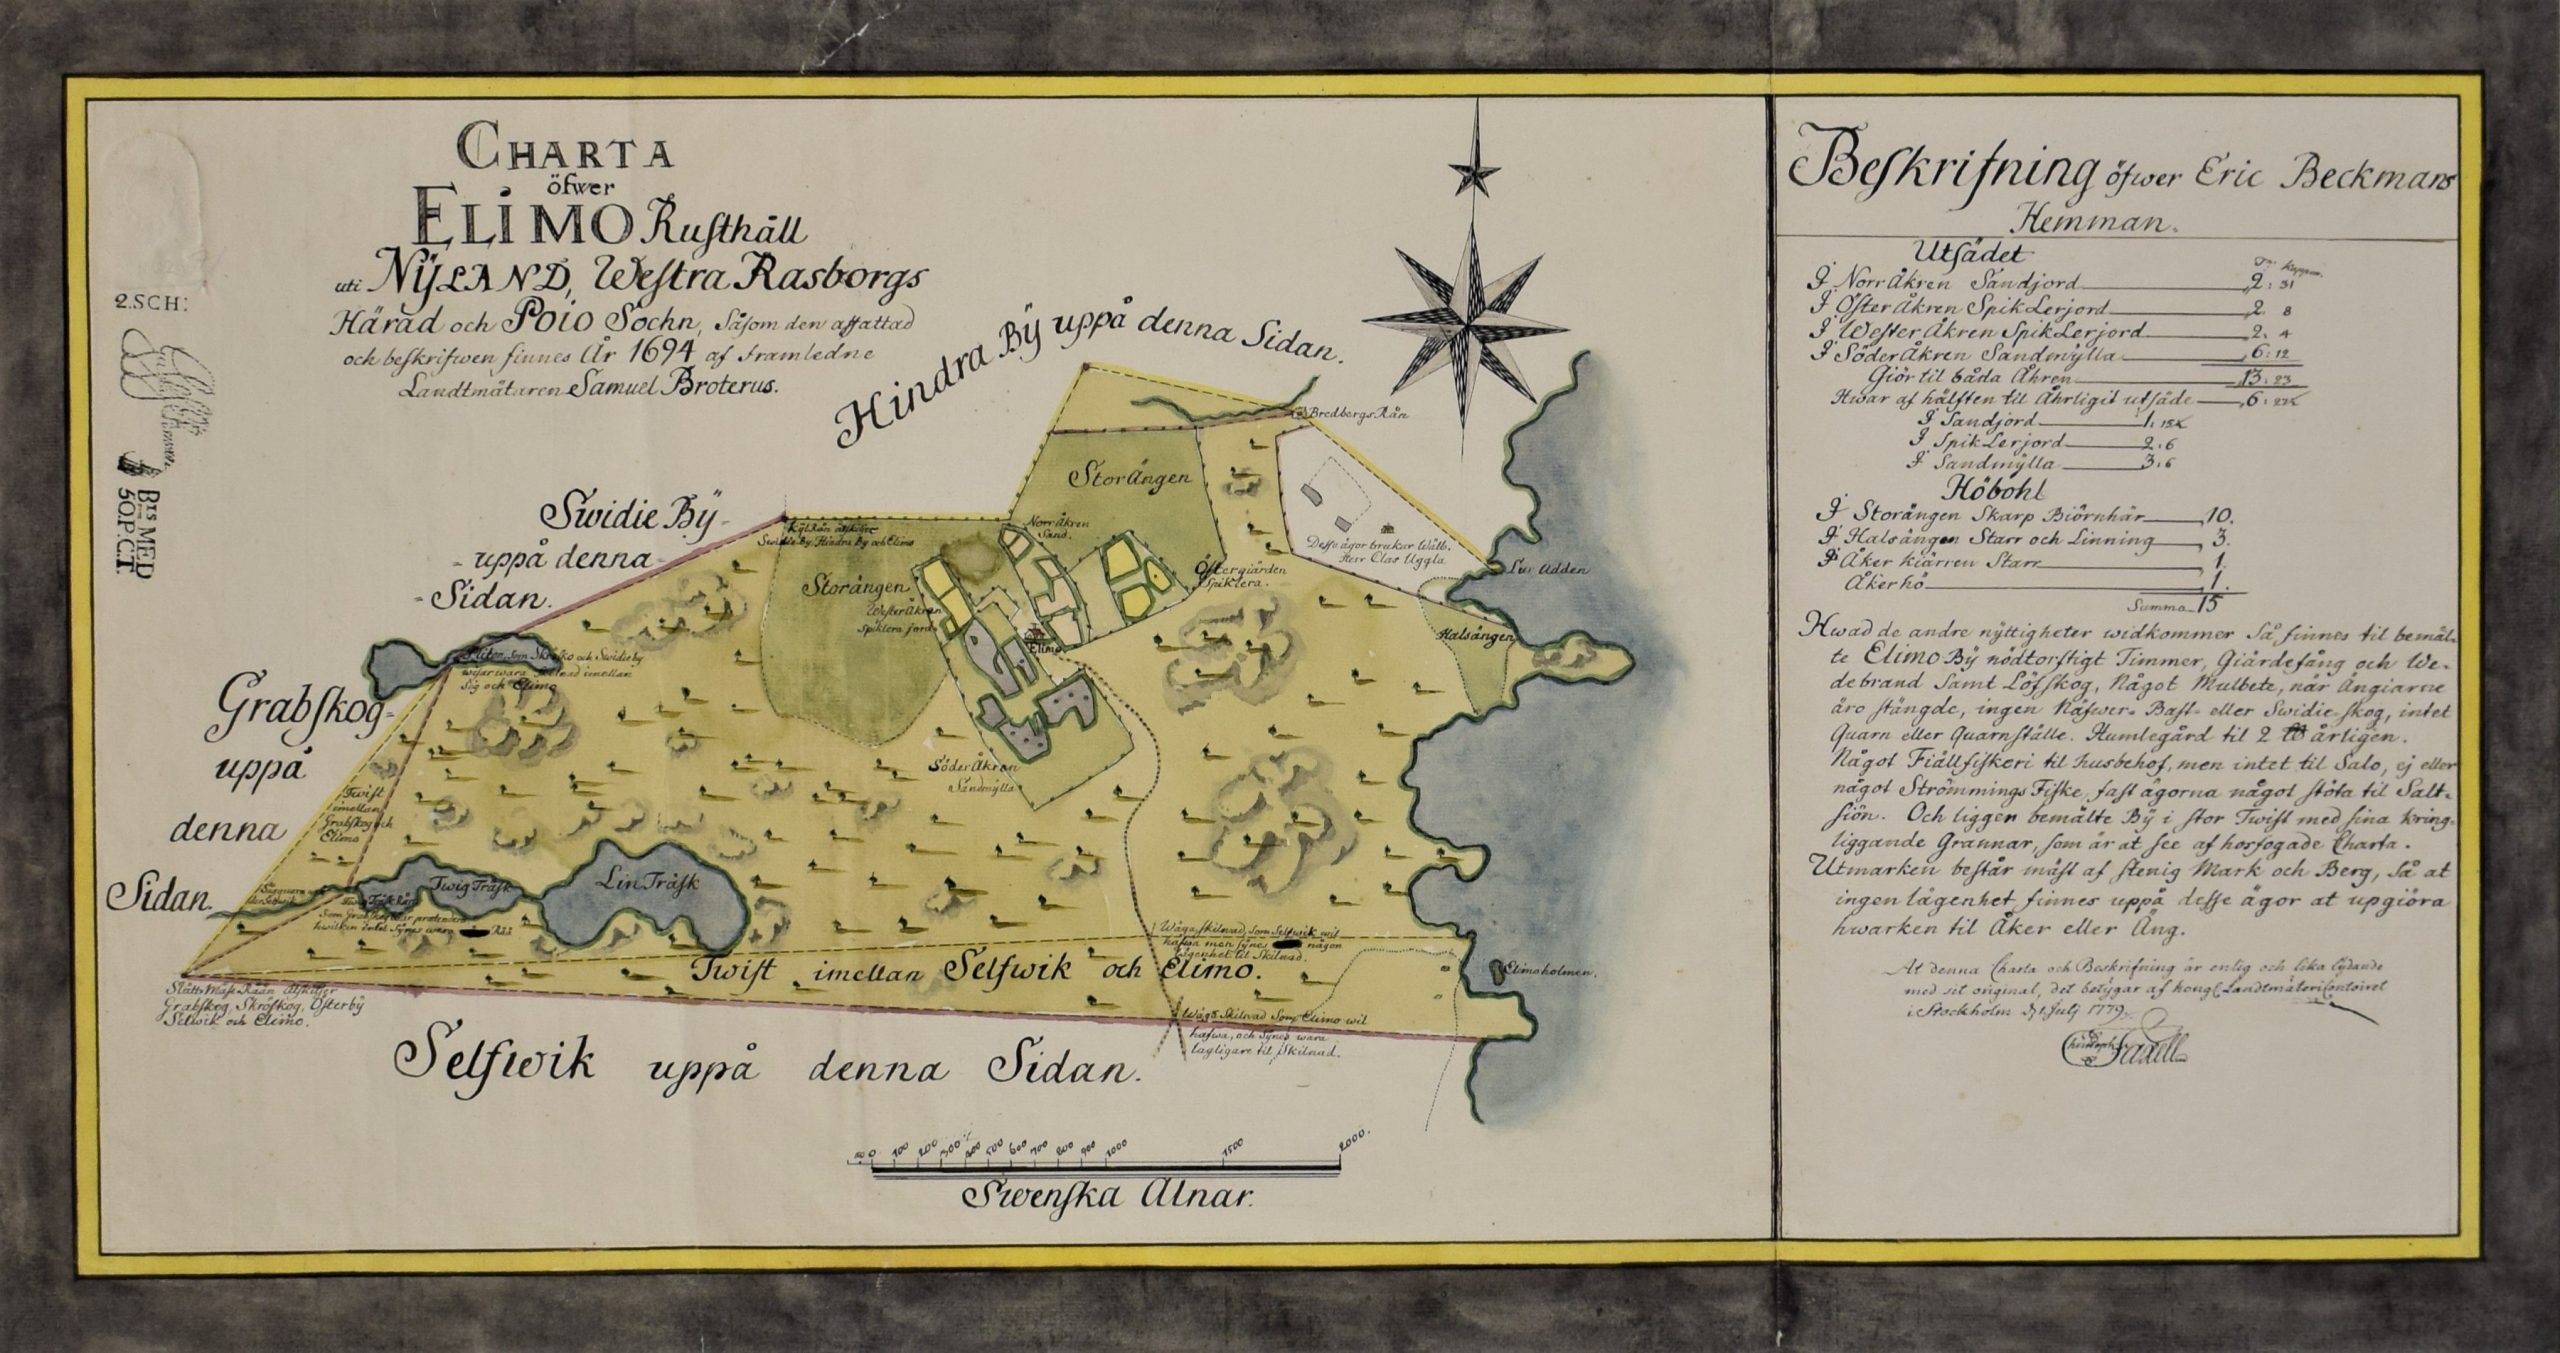 CHARTA
öfwer
ELIMO Rusthåll
uti NŸLAND, Westra Rasborgs
Härad och POIO Sochn, såsom den affattad
och beskrifwen finnes År 1694 af framledne
Landtmätaren Samuel Broterus.
2.SCH:
BIS MED
50.P.CT.
Hindra Bÿ uppå denna Sidan.
Swidie Bÿ
uppå denna
Sidan.
Grabskog
uppå
denna
Sidan.
Selfwik uppå denna Sidan.
Bredbergs Rån
Storängen
Norr Åkren
Sand.
Swidie By, Hindra By och Elimo
Storängen
Wester Åkren
Spiklera jord
Östergiärden
Spiklera.
Desse ägor brukar Wälb.
Herr Clas Uggla
Lur Udden
Halsängen
Elimo
som Skrösko och Swidie by
wisar wara skilnad imellan
sig och Elimo
Söder Åkren
Sandmylla
Twist
imellan
Grabskog och
Elimo
Twig Träsk
Lin Träsk
som Grabskog
hwilken intet synes wara
Wäga skilnad som Selfwik wil
hafwa men synes någon
lägenhet til Skilnad.
Twist imellan Selfwik och Elimo.
Elimoholmen.
Grabskog, Skröskog, Österbÿ
Selwik och Elimo.
Wäga Skilnad som Elimo wil
hafwa, och synes wara
lagligare til skilnad.
50 0 100 200 300 400 500 600 700 800 900 1000 1500 2000.
Swenska Alnar.
Beskrifning öfwer Eric Beckmans
Hemman.
Utsädet
I Norr Åkren Sandjord 2: 31
I Öster Åkren Spik Lerjord 2 8
I Wester Åkren Spik Lerjord 2. 4
I Söder Åkren Sandmÿlla 6: 12
Giör til båda Åhren 13: 23
Hwar af hälften til Åhrligit utsäde 6:
I Sandjord 1:
I Spik Lerjord 2: 6
I Sandmÿlla 3: 6
Höbohl
I Storängen Skarp Biörnhår 10.
I Halsängen Starr och Linning 3.
I Åker kiärren Starr 1.
Åkerhö 1.
Summa 15
Hwad de andre nÿttigheter widkommer så finnes til bemäl-
te Elimo Bÿ nödtorftigt Timmer, Giärdefång och We-
debrand samt Löfskog, Något Mulbete, när Ängiarne
äro stängde, ingen Näfwer- Bast- eller Swidie-skog, intet
Quarn eller Quarnställe. Humlegård til 2 ℔ årligen.
Något Fiällfiskeri til husbehof, men intet til Salo, ej eller
något Strömmings Fiske, fast ägorna något stöta til Salt-
siön. Och ligger bemälte Bÿ i stor Twist med sina kring-
liggande Grannar, som är at see af horfogade Charta.
Utmarken består mäst af stenig Mark och Berg, så at
ingen lägenhet finnes uppå desse ägor at upgiöra
hwarken til Åker eller Äng.
At denna Charta och Beskrifning är enlig och lika lÿdande
med sit original, det betygar af kongl. Landtmäteri Contoiret
i Stockholm d. 1 Julj 1779.